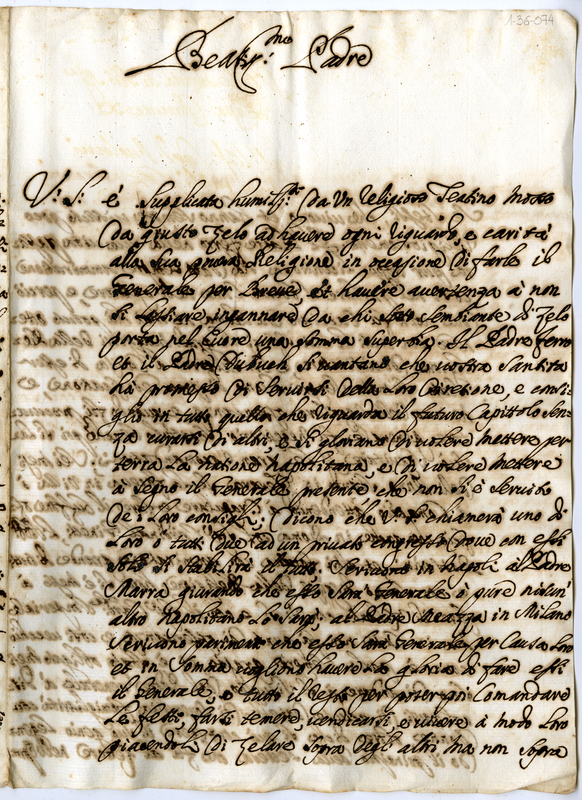 1-36-074
Beatis.mo Padre
V. S. è supplicata humilis.te da un religioso Teatino mosso
da giusto zelo ad havere ogni riguardo, e carità
alla sua povera Religione in occasione di farle il
Generale per Breve, et havere avertenza à non
si lasciare ingannare da chi sotto sembiante di zelo
porta nel cuore una somma superbia. Il Padre ferro
et il Padre si vantano che vostra Santità
hà promesso di servirsi della loro direzione, e consi-
glio in tutto quello che riguarda il futuro Capittolo sen-
za curarsi di altri, e si gloriano di volere mettere per
terra la natione napolitana, e di volere mettere
à segno il Generale presente che non si è servito
de i loro consigli; dicono che V. S. chiamerà uno di
loro ò tutti due ad un privato congresso dove con essi
solo si stabilirà il tutto. Scrivono in Napoli al Padre
Marra giurando che esso sarà Generale ò pure nissun'
altro napolitano lo sarà; al Padre Meazza in Milano
scrivono parimente che esso sarà Generale per causa loro
et in somma vogliono havere la gloria di fare essi
il Generale, e tutto il resto per poter poi comandare
le feste, farsi temere, vendicarsi, e vivere à modo loro
piacendoli di zelare sopra degli altri ma non sopra